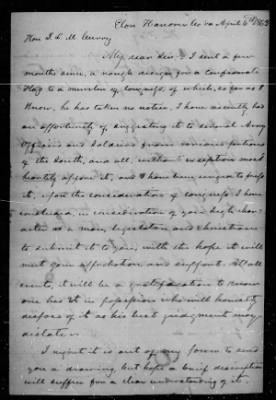 Elon Hanover Co Va April 6th 1863
Hon J. L. M. Curry
My dear Sir: I sent a few
months since, a rough design for a Confederate
Flag to a member of Congress, of which, so far as I
know, he has taken no notice. I have recently had
an opportunity of suggesting it to several Army
Officers and Soldiers from various portions
of the South, and all, without exception most
heartily approve it, and I have been urged to press
it, upon the consideration of Congress. I have
concluded, in consideration of your high char-
acter as a man, legislator and christian
to submit it to you, with the hope it will
meet your approbation and support. At all
events, it will be a gratification to know
one has it in possession who will honestly
dispose of it as his best judgment may
dictate.
I regret it is out of my power to send
you a drawing, but hope a brief description
will suffice for a clear understanding of it.